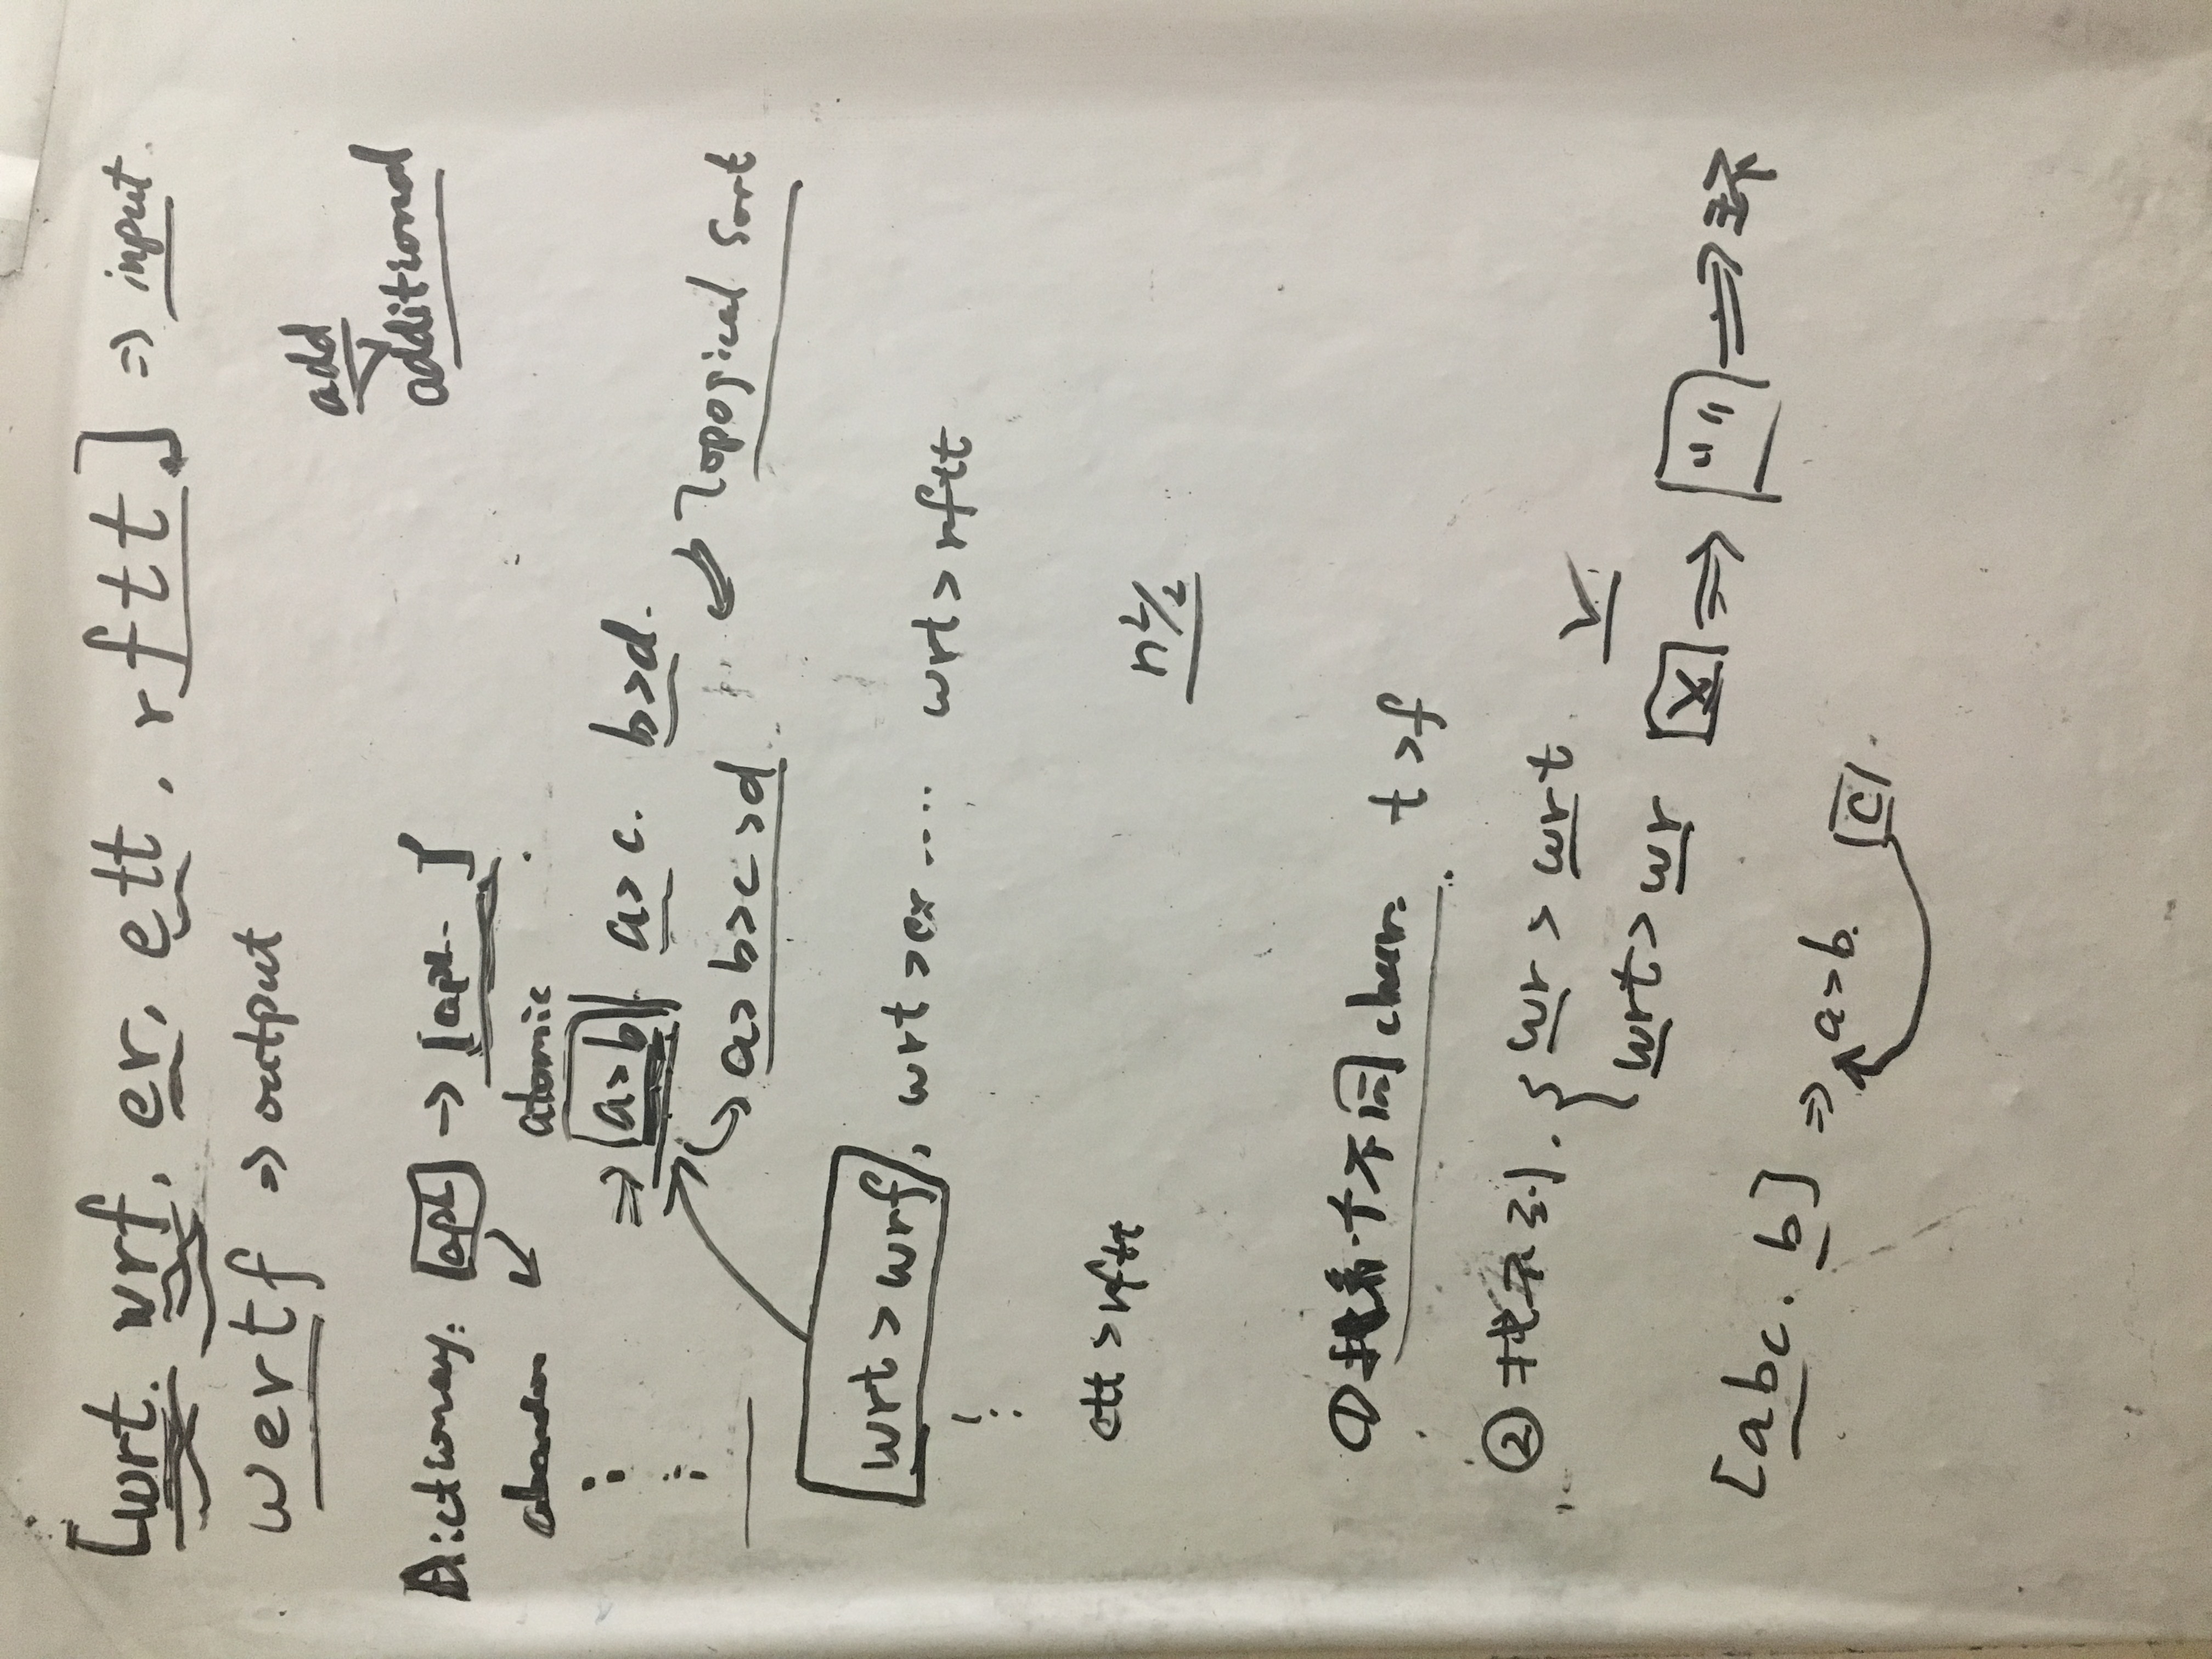 [wrt. wrf, er, ett, rftt] => input.
wertf => output
add
additional
Dictionary: →
atomic
=> a>b a>c. b>d.
a>b>c>d Topogical Sort
wrt > wrf, wrt > er .... wrt > rftt
ett > rftt
n²/2
① 找第一个不同 char. t > f
② 找不到. { wr > wrt. ✓
wrt > wr X => "" => 环
[abc. b] => a>b. c.